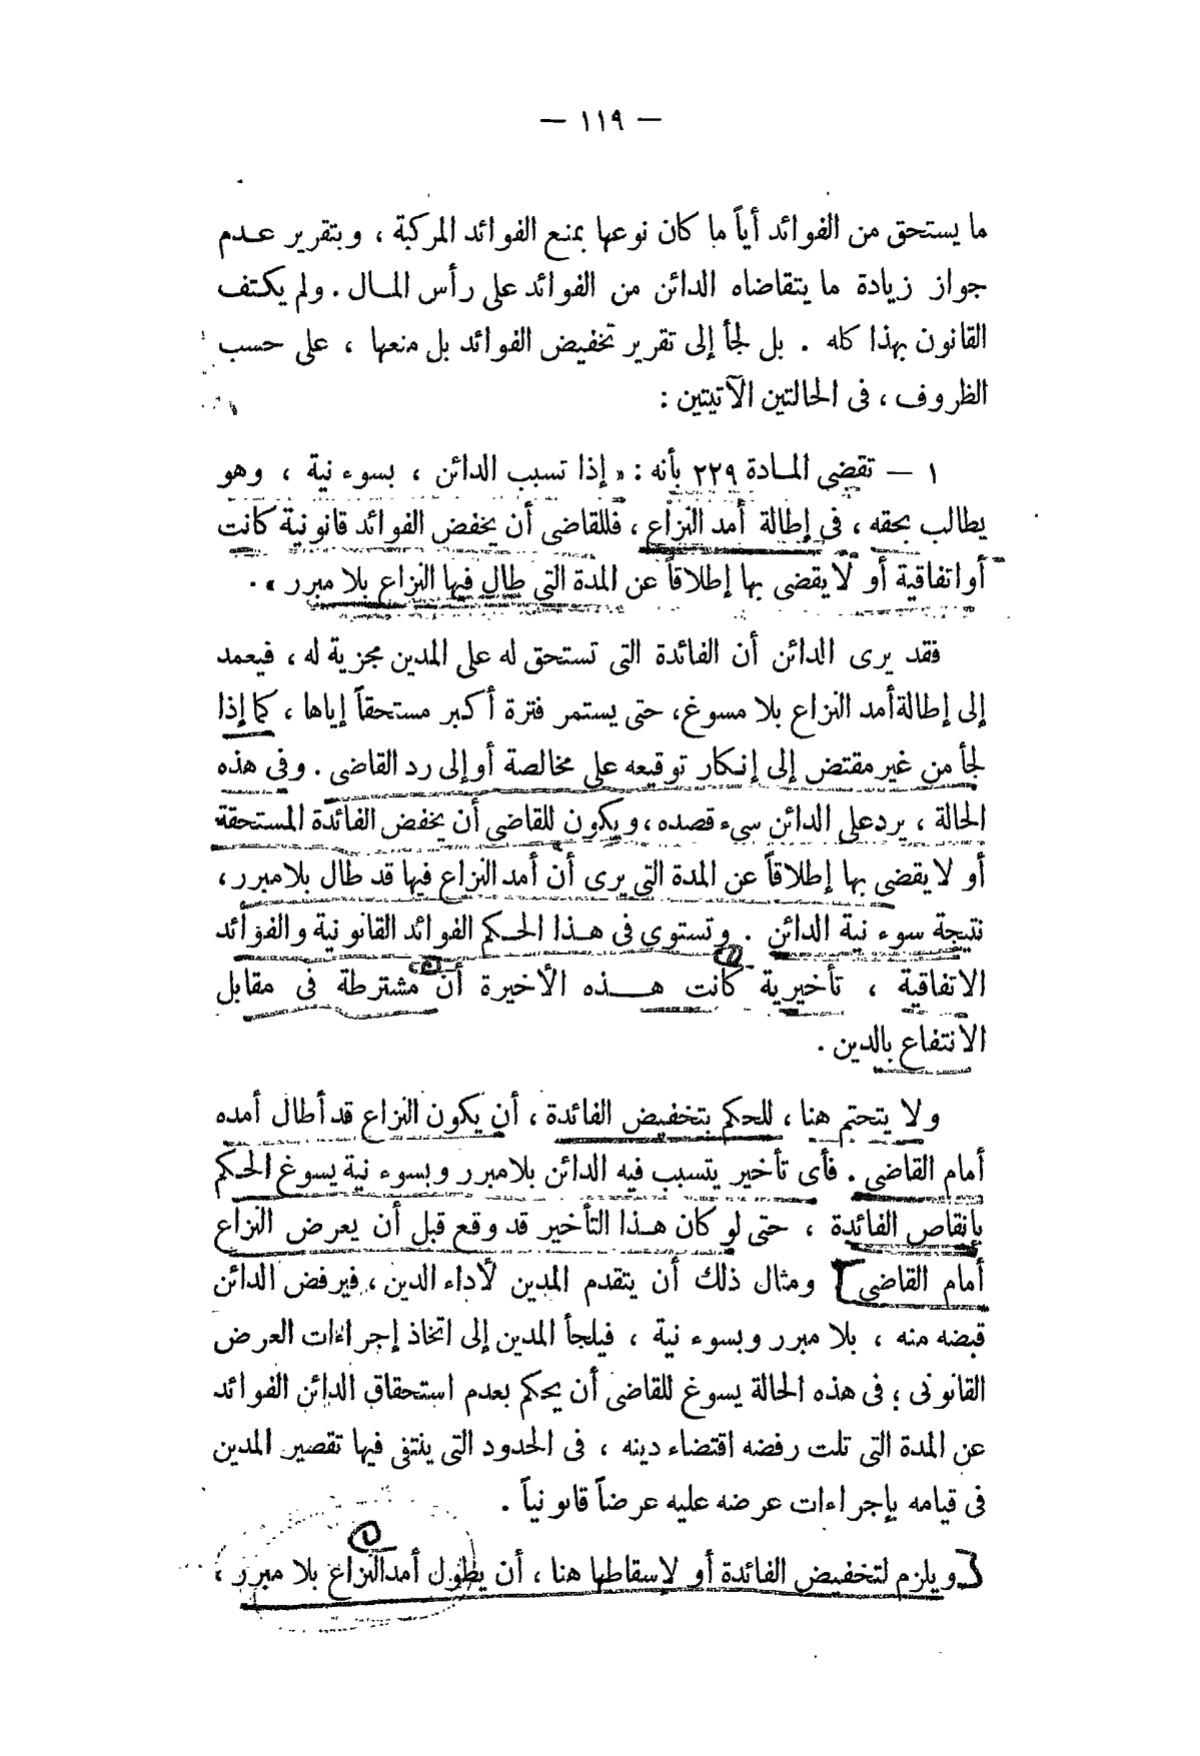 — ١١٩ —
ما يستحق من الفوائد أياً ما كان نوعها بمنع الفوائد المركبة ، وبتقرير عـدم
جواز زيادة ما يتقاضاه الدائن من الفوائد على رأس المـال . ولم يكتف
القانون بهذا كله . بل لجأ إلى تقرير تخفيض الفوائد بل منعها ، على حسب
الظروف ، فى الحالتين الآتيتين :
١ — تقضى المـادة ٢٢٩ بأنه : « إذا تسبب الدائن ، بسوء نية ، وهو
يطالب بحقه ، فى إطالة أمد النزاع ، فللقاضى أن يخفض الفوائد قانونية كانت
أو اتفاقية أو لا يقضى بها إطلاقاً عن المدة التى طال فيها النزاع بلا مبرر » .
فقد يرى الدائن أن الفائدة التى تستحق له على المدين مجزية له ، فيعمد
إلى إطالة أمد النزاع بلا مسوغ، حتى يستمر فترة أكبر مستحقاً إياها ، كما إذا
لجأ من غير مقتض إلى إنكار توقيعه على مخالصة أو إلى رد القاضى . وفى هذه
الحالة ، يرد على الدائن سىء قصده ، ويكون للقاضى أن يخفض الفائدة المستحقة
أو لا يقضى بها إطلاقاً عن المدة التى يرى أن أمد النزاع فيها قد طال بلا مبرر ،
نتيجة سوء نية الدائن . وتستوى فى هـذا الحـكم الفوائد القانونية والفوائد
الاتفاقية ، تأخيرية كانت هـــذه الأخيرة أن مشترطة فى مقابل
الانتفاع بالدين .
ولا يتحتم هنا ، للحكم بتخفيض الفائدة ، أن يكون النزاع قد أطال أمده
أمام القاضى . فأى تأخير يتسبب فيه الدائن بلا مبرر وبسوء نية يسوغ الحـكم
بإنقاص الفائدة ، حتى لو كان هـذا التأخير قد وقع قبل أن يعرض النزاع
أمام القاضى [ ومثال ذلك أن يتقدم المدين لأداء الدين ، فيرفض الدائن
قبضه منه ، بلا مبرر وبسوء نية ، فيلجأ المدين إلى اتخاذ إجراءات العرض
القانونى ؛ فى هذه الحالة يسوغ للقاضى أن يحكم بعدم استحقاق الدائن الفوائد
عن المدة التى تلت رفضه اقتضاء دينه ، فى الحدود التى ينتفى فيها تقصير المدين
فى قيامه بإجراءات عرضه عليه عرضاً قانونياً .
[ ويلزم لتخفيض الفائدة أو لإسقاطها هنا ، أن يطول أمد النزاع بلا مبرر ،